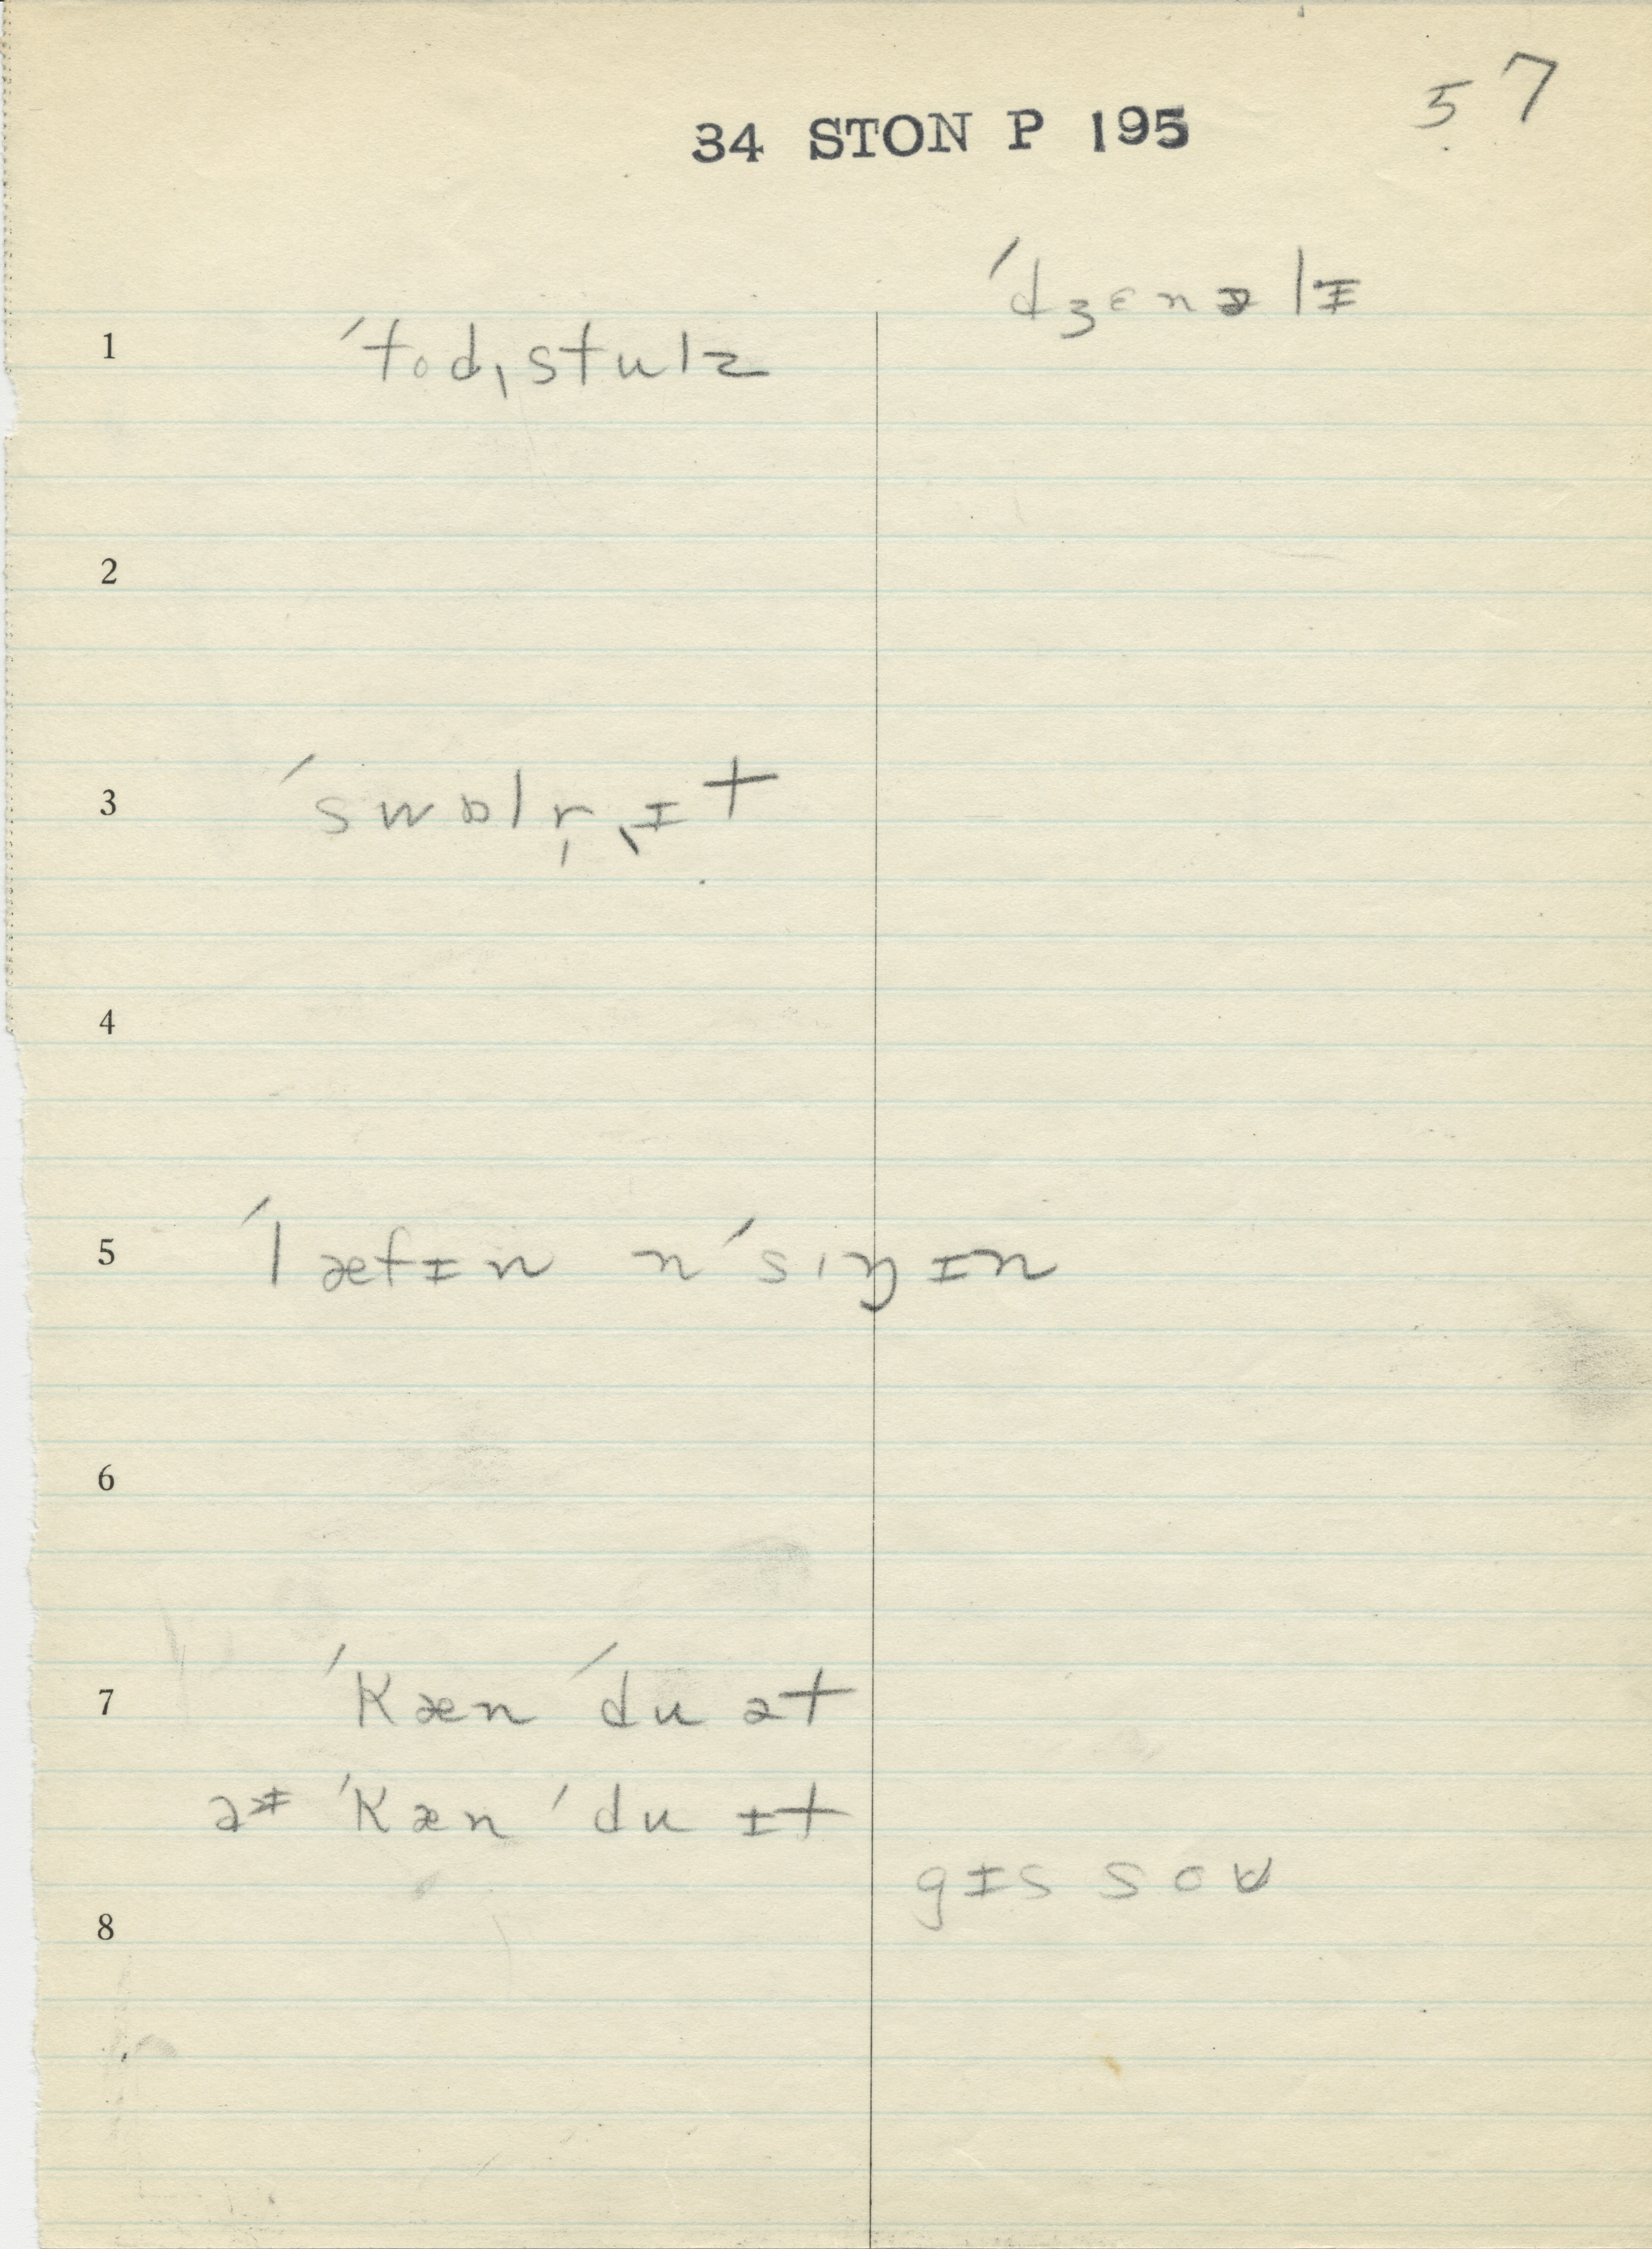 57
34 STON P 195
ˈdʒɛnəlɨ
1 ˈtodˌstulz
2
3 ˈswɒlr̩ˌɨt
4
5 ˈlæfɨn nˈsɪŋɨn
6
7 ˈkæn ˈdu ət
aɨ ˈkæn ˈdu ɨt
gɨs soʊ
8